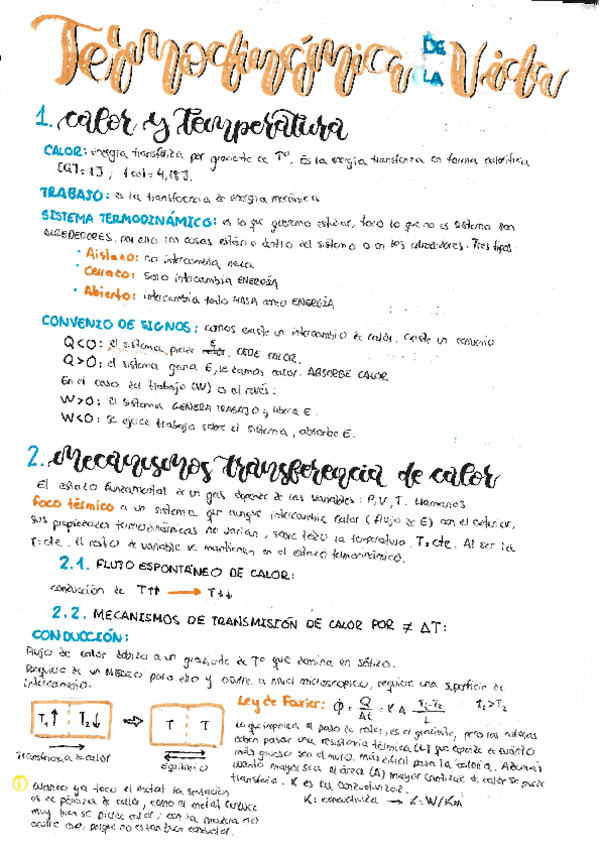 Termodinámica DE LA Vida
1. Calor y Temperatura
CALOR: energía transferida por gradiente de Tº. Es la energía transferida en forma calorífica
[Q] = 1J ; 1 cal = 4,18J.
TRABAJO: es la transferencia de energía mecánica
SISTEMA TERMODINÁMICO: es lo que queremos estudiar, todo lo que no es sistema son
ALREDEDORES, por ello las cosas están o dentro del sistema o en los alrededores. Tres tipos:
· Aislado: no intercambia nada
· Cerrado: solo intercambia ENERGÍA
· Abierto: intercambia tanto MASA como ENERGÍA
CONVENIO DE SIGNOS: como existe un intercambio de calor, existe un convenio
Q<0: el sistema pierde E. CEDE CALOR.
Q>0: el sistema gana E, le damos calor. ABSORBE CALOR
En el caso del trabajo (W) es al revés:
W>0: el sistema GENERA TRABAJO y libera E.
W<0: se ejerce trabajo sobre el sistema, absorbe E.
2. Mecanismos transferencia de calor
El estado fundamental de un gas depende de las variables: P, V, T. Llamamos
foco térmico a un sistema que aunque intercambie calor (flujo de E) con el exterior,
sus propiedades termodinámicas no varían, sobre todo la temperatura. T = cte. Al ser la
T = cte. El resto de variable se mantienen en el estado termodinámico.
2.1. FLUJO ESPONTÁNEO DE CALOR:
conducción de T↑↑ → T↓↓
2.2. MECANISMOS DE TRANSMISIÓN DE CALOR POR ≠ ΔT:
CONDUCCIÓN:
Flujo de calor debido a un gradiente de Tº que domina en sólido.
Requiere de un MEDIO para ello y ocurre a nivel microscópico, requiere una superficie de
intercambio.
T₁↑ T₂↓ ⇒ T T
Transferencia de calor
equilibrio
Ley de Fourier: Φ = Q/Δt = K A (T₁-T₂)/L t₁>T₂
Lo que impulsa al paso de calor, es el gradiente, pero las calorías
deben pasar una resistencia térmica (L) que depende de cuánto
más grueso sea el muro, más difícil pasa la caloría. Además
cuanto mayor sea el área (A) mayor cantidad de calor se puede
transferir. K es la conductividad.
K: conductividad → K = W/Km
① Cuando yo toco el metal la sensación
es de pérdida de calor, como el metal conduce
muy bien se pierde calor; con la madera no
ocurre eso, porque no es tan buen conductor.